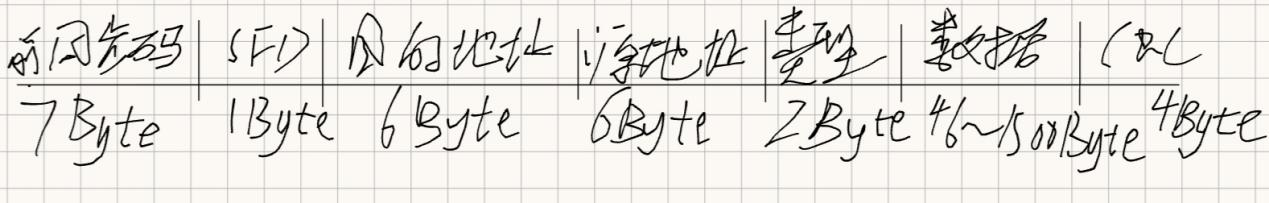 前同步码 | SFD | 目的地址 | 源地址 | 类型 | 数据 | CRC
7Byte 1Byte 6Byte 6Byte 2Byte 46~1500Byte 4Byte